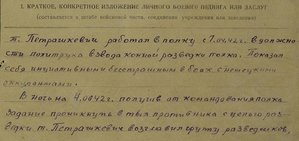 I. КРАТКОЕ, КОНКРЕТНОЕ ИЗЛОЖЕНИЕ ЛИЧНОГО БОЕВОГО ПОДВИГА ИЛИ ЗАСЛУГ
(составляется в штабе войсковой части, соединения учреждения или заведения)
Т. Петрашкевич работал в полку с 1.0042 г. в должнос
ти политрука взвода конной разведки полка. Показал
себя инициативным бесстрашным в боях с немецкими
оккупантами.
В ночь на 4.0042 г. получив от командования полка
задание проникнуть в тыл противника с целью раз
ведки т. Петрашкевич возглавил группу разведчиков,